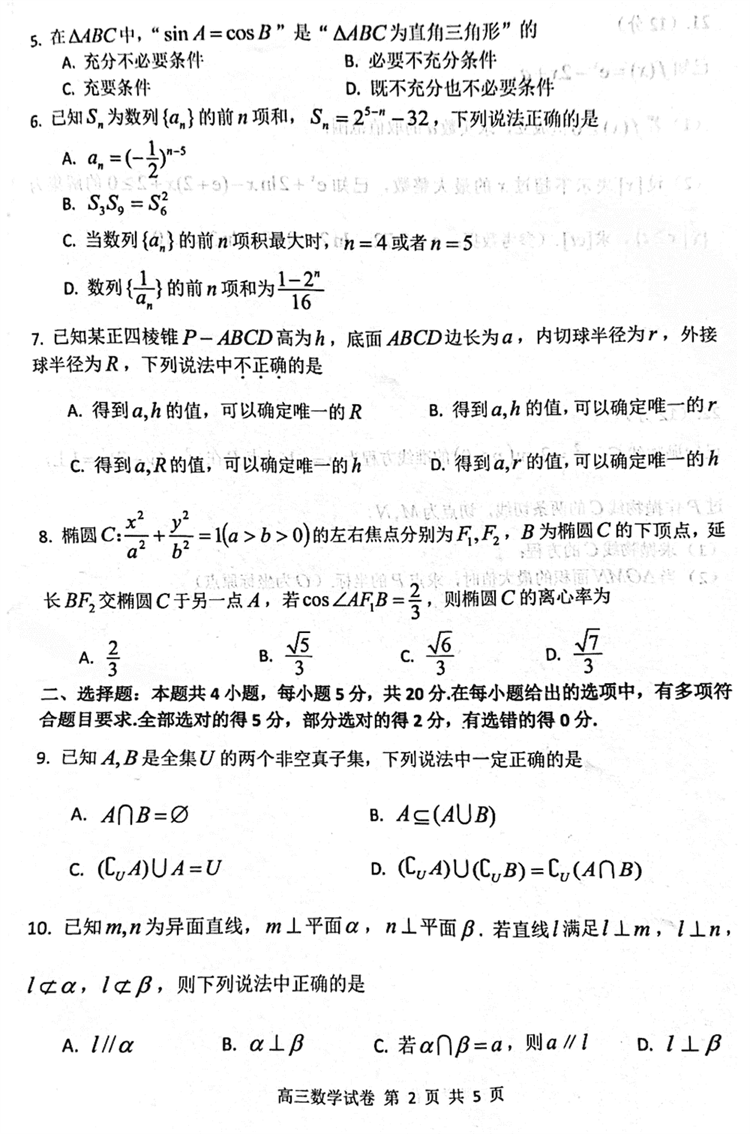 5. 在△ABC中，“ sin A = cos B ” 是 “ △ABC 为直角三角形” 的
A. 充分不必要条件 B. 必要不充分条件
C. 充要条件 D. 既不充分也不必要条件
6. 已知 Sₙ 为数列 {aₙ} 的前 n 项和， Sₙ = 2⁵⁻ⁿ − 32，下列说法正确的是
A. aₙ = (−1/2)ⁿ⁻⁵
B. S₃S₉ = S₆²
C. 当数列 {aₙ} 的前 n 项积最大时，n = 4 或者 n = 5
D. 数列 {1/aₙ} 的前 n 项和为 (1−2ⁿ)/16
7. 已知某正四棱锥 P − ABCD 高为 h ，底面 ABCD 边长为 a ，内切球半径为 r ，外接
球半径为 R ，下列说法中不正确的是
A. 得到 a,h 的值，可以确定唯一的 R B. 得到 a,h 的值，可以确定唯一的 r
C. 得到 a,R 的值，可以确定唯一的 h D. 得到 a,r 的值，可以确定唯一的 h
8. 椭圆 C: x²/a² + y²/b² = 1(a > b > 0) 的左右焦点分别为 F₁,F₂ ，B 为椭圆 C 的下顶点，延
长 BF₂ 交椭圆 C 于另一点 A ，若 cos ∠AF₁B = 2/3 ，则椭圆 C 的离心率为
A. 2/3 B. √5/3 C. √6/3 D. √7/3
二、选择题：本题共 4 小题，每小题 5 分，共 20 分.在每小题给出的选项中，有多项符
合题目要求.全部选对的得 5 分，部分选对的得 2 分，有选错的得 0 分.
9. 已知 A,B 是全集 U 的两个非空真子集，下列说法中一定正确的是
A. A∩B=∅ B. A⊆(A∪B)
C. (∁ᵤA)∪A=U D. (∁ᵤA)∪(∁ᵤB)=∁ᵤ(A∩B)
10. 已知 m,n 为异面直线，m⊥平面 α ，n⊥平面 β . 若直线 l 满足 l⊥m ，l⊥n ，
l⊄α，l⊄β，则下列说法中正确的是
A. l//α B. α⊥β C. 若 α∩β=a ，则 a//l D. l⊥β
高三数学试卷 第 2 页 共 5 页